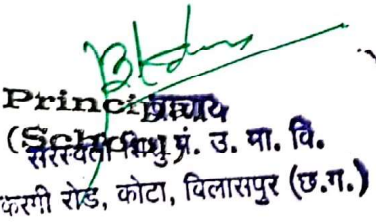 Principal
प्राचार्य
(School)
सरस्वती शिशु मं. उ. मा. वि.
करगी रोड, कोटा, बिलासपुर (छ.ग.)